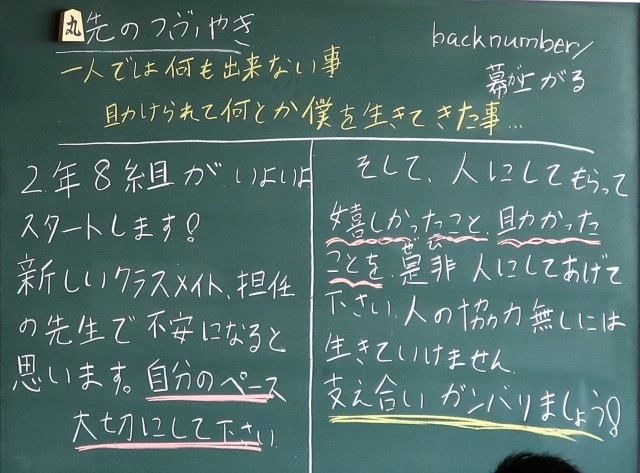 丸先のつぶやき
backnumber/
幕が上がる
一人では何も出来ない事
助けられて何とか僕を生きてきた事…
2年8組が、いよいよ
スタートします!
新しいクラスメイト、担任
の先生で不安になると
思います。自分のペース
大切にして下さい
そして、人にしてもらって
嬉しかったこと、助かった
ことを、是非人にしてあげて
ぜひ
下さい。人の協力無しには
生きていけません。
支え合いガンバりましょう!